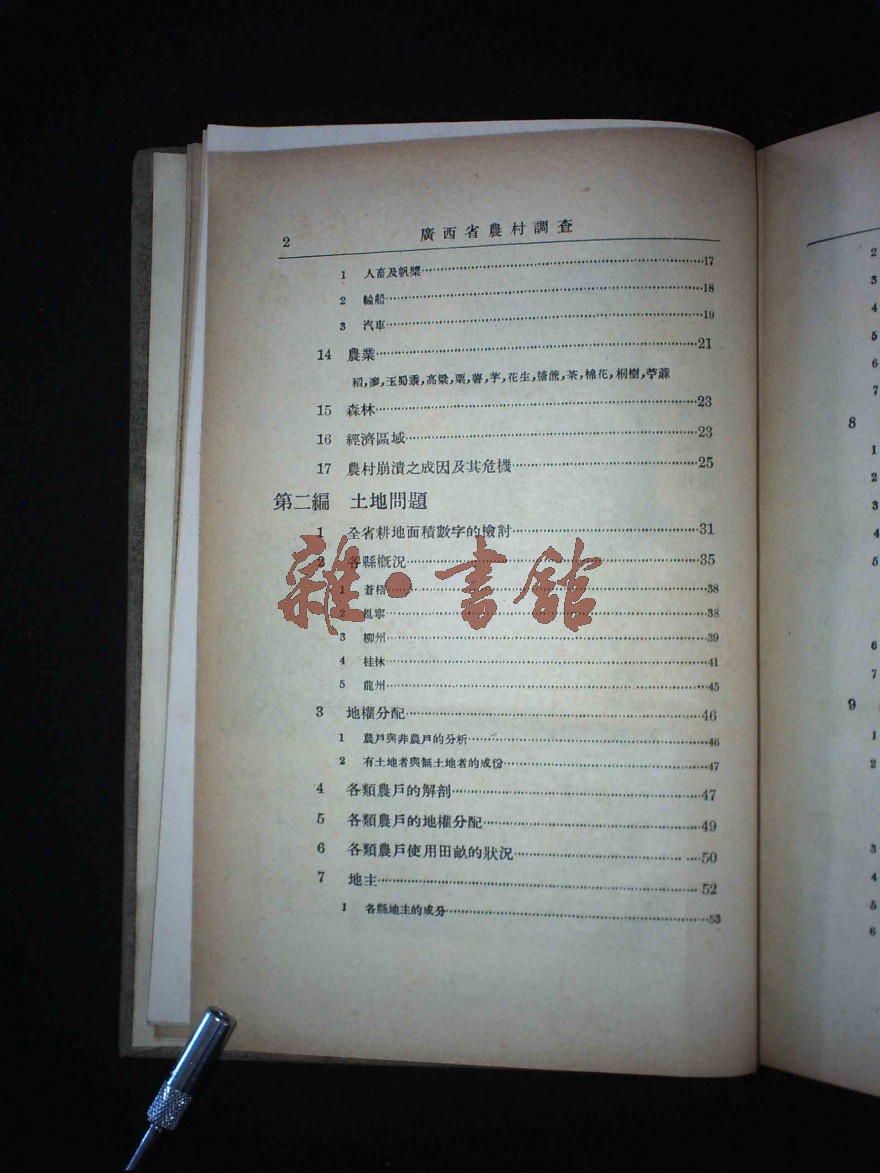 2 廣西省農村調查
1 人畜及帆槳……17
2 輪船……18
3 汽車……19
14 農業……21
稻,麥,玉蜀黍,高粱,粟,薯,芋,花生,糖蔗,茶,棉花,桐樹,苧蔴
15 森林……23
16 經濟區域……23
17 農村崩潰之成因及其危機……25
第二編 土地問題
1 全省耕地面積數字的檢討……31
2 各縣概況……35
1 蒼梧……38
2 邕寧……38
3 柳州……39
4 桂林……41
5 龍州……45
3 地權分配……46
1 農戶與非農戶的分析……46
2 有土地者與無土地者的成份……47
4 各類農戶的解剖……47
5 各類農戶的地權分配……49
6 各類農戶使用田畝的狀況……50
7 地主……52
1 各縣地主的成分……53
雜·書館
2
3
4
5
6
7
8
1
2
3
4
5
6
7
9
1
2
3
4
5
6